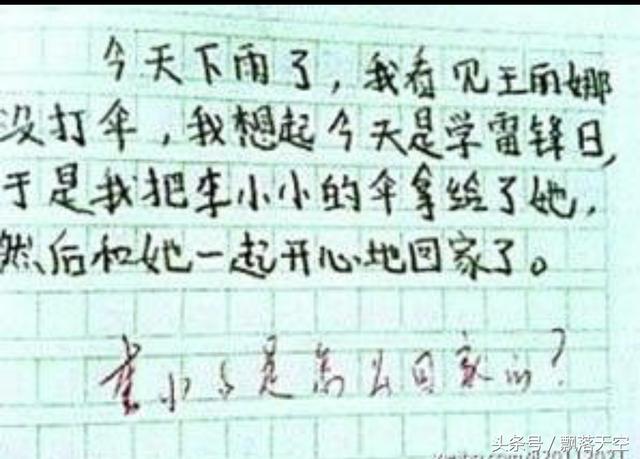 今天下雨了，我看见王丽娜
没打伞，我想起今天是学雷锋日，
于是我把李小小的伞拿给了她，
然后和她一起开心地回家了。
李小小是怎么回家的？
头条号／飘落天空